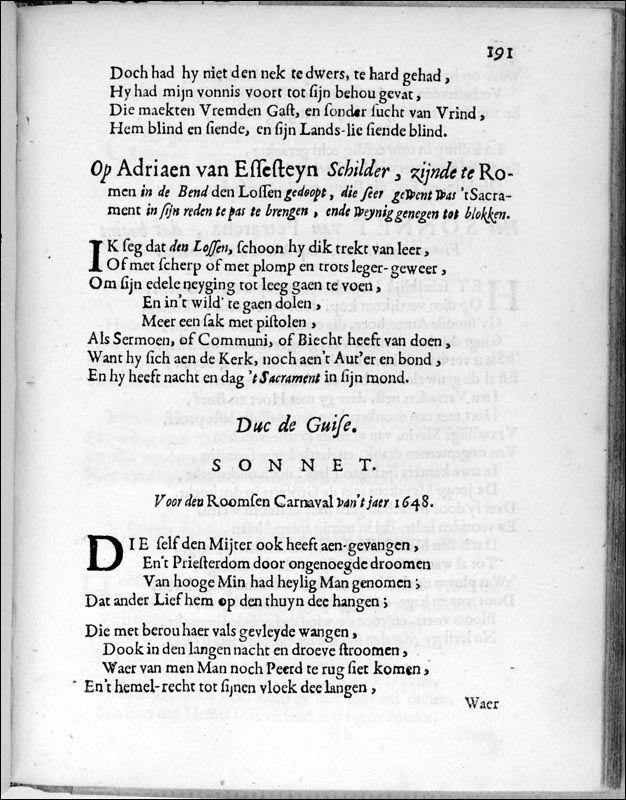 191
Doch had hy niet den nek te dwers, te hard gehad,
Hy had mijn vonnis voort tot sijn behou gevat,
Die maekten Vremden Gast, en sonder sucht van Vrind,
Hem blind en siende, en sijn Lands-lie siende blind.
Op Adriaen van Essesteyn Schilder, zijnde te Ro-
men in de Bend den Lossen gedoopt, die seer gewent was 't Sacra-
ment in sijn reden te pas te brengen, ende weynig genegen tot blokken.
IK seg dat den Lossen, schoon hy dik trekt van leer,
Of met scherp of met plomp en trots leger-geweer,
Om sijn edele neyging tot leeg gaen te voen,
En in't wild' te gaen dolen,
Meer een sak met pistolen,
Als Sermoen, of Communi, of Biecht heeft van doen,
Want hy sich aen de Kerk, noch aen't Aut'er en bond,
En hy heeft nacht en dag 't Sacrament in sijn mond.
Duc de Guise.
SONNET.
Voor den Roomsen Carnaval van't jaer 1648.
DIE self den Mijter ook heeft aen-gevangen,
En't Priesterdom door ongenoegde droomen
Van hooge Min had heylig Man genomen;
Dat ander Lief hem op den thuyn dee hangen;
Die met berou haer vals gevleyde wangen,
Dook in den langen nacht en droeve stroomen,
Waer van men Man noch Peerd te rug siet komen,
En't hemel-recht tot sijnen vloek dee langen,
Waer